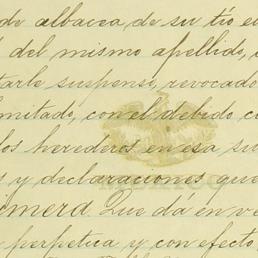 de albacea de su tío e
del mismo apellido,
tarle suspenso, revocado
limitado, con el debido c
los herederos en esa su
s y declaraciones que
imera. Que dá en ve
perpetica y con efecto